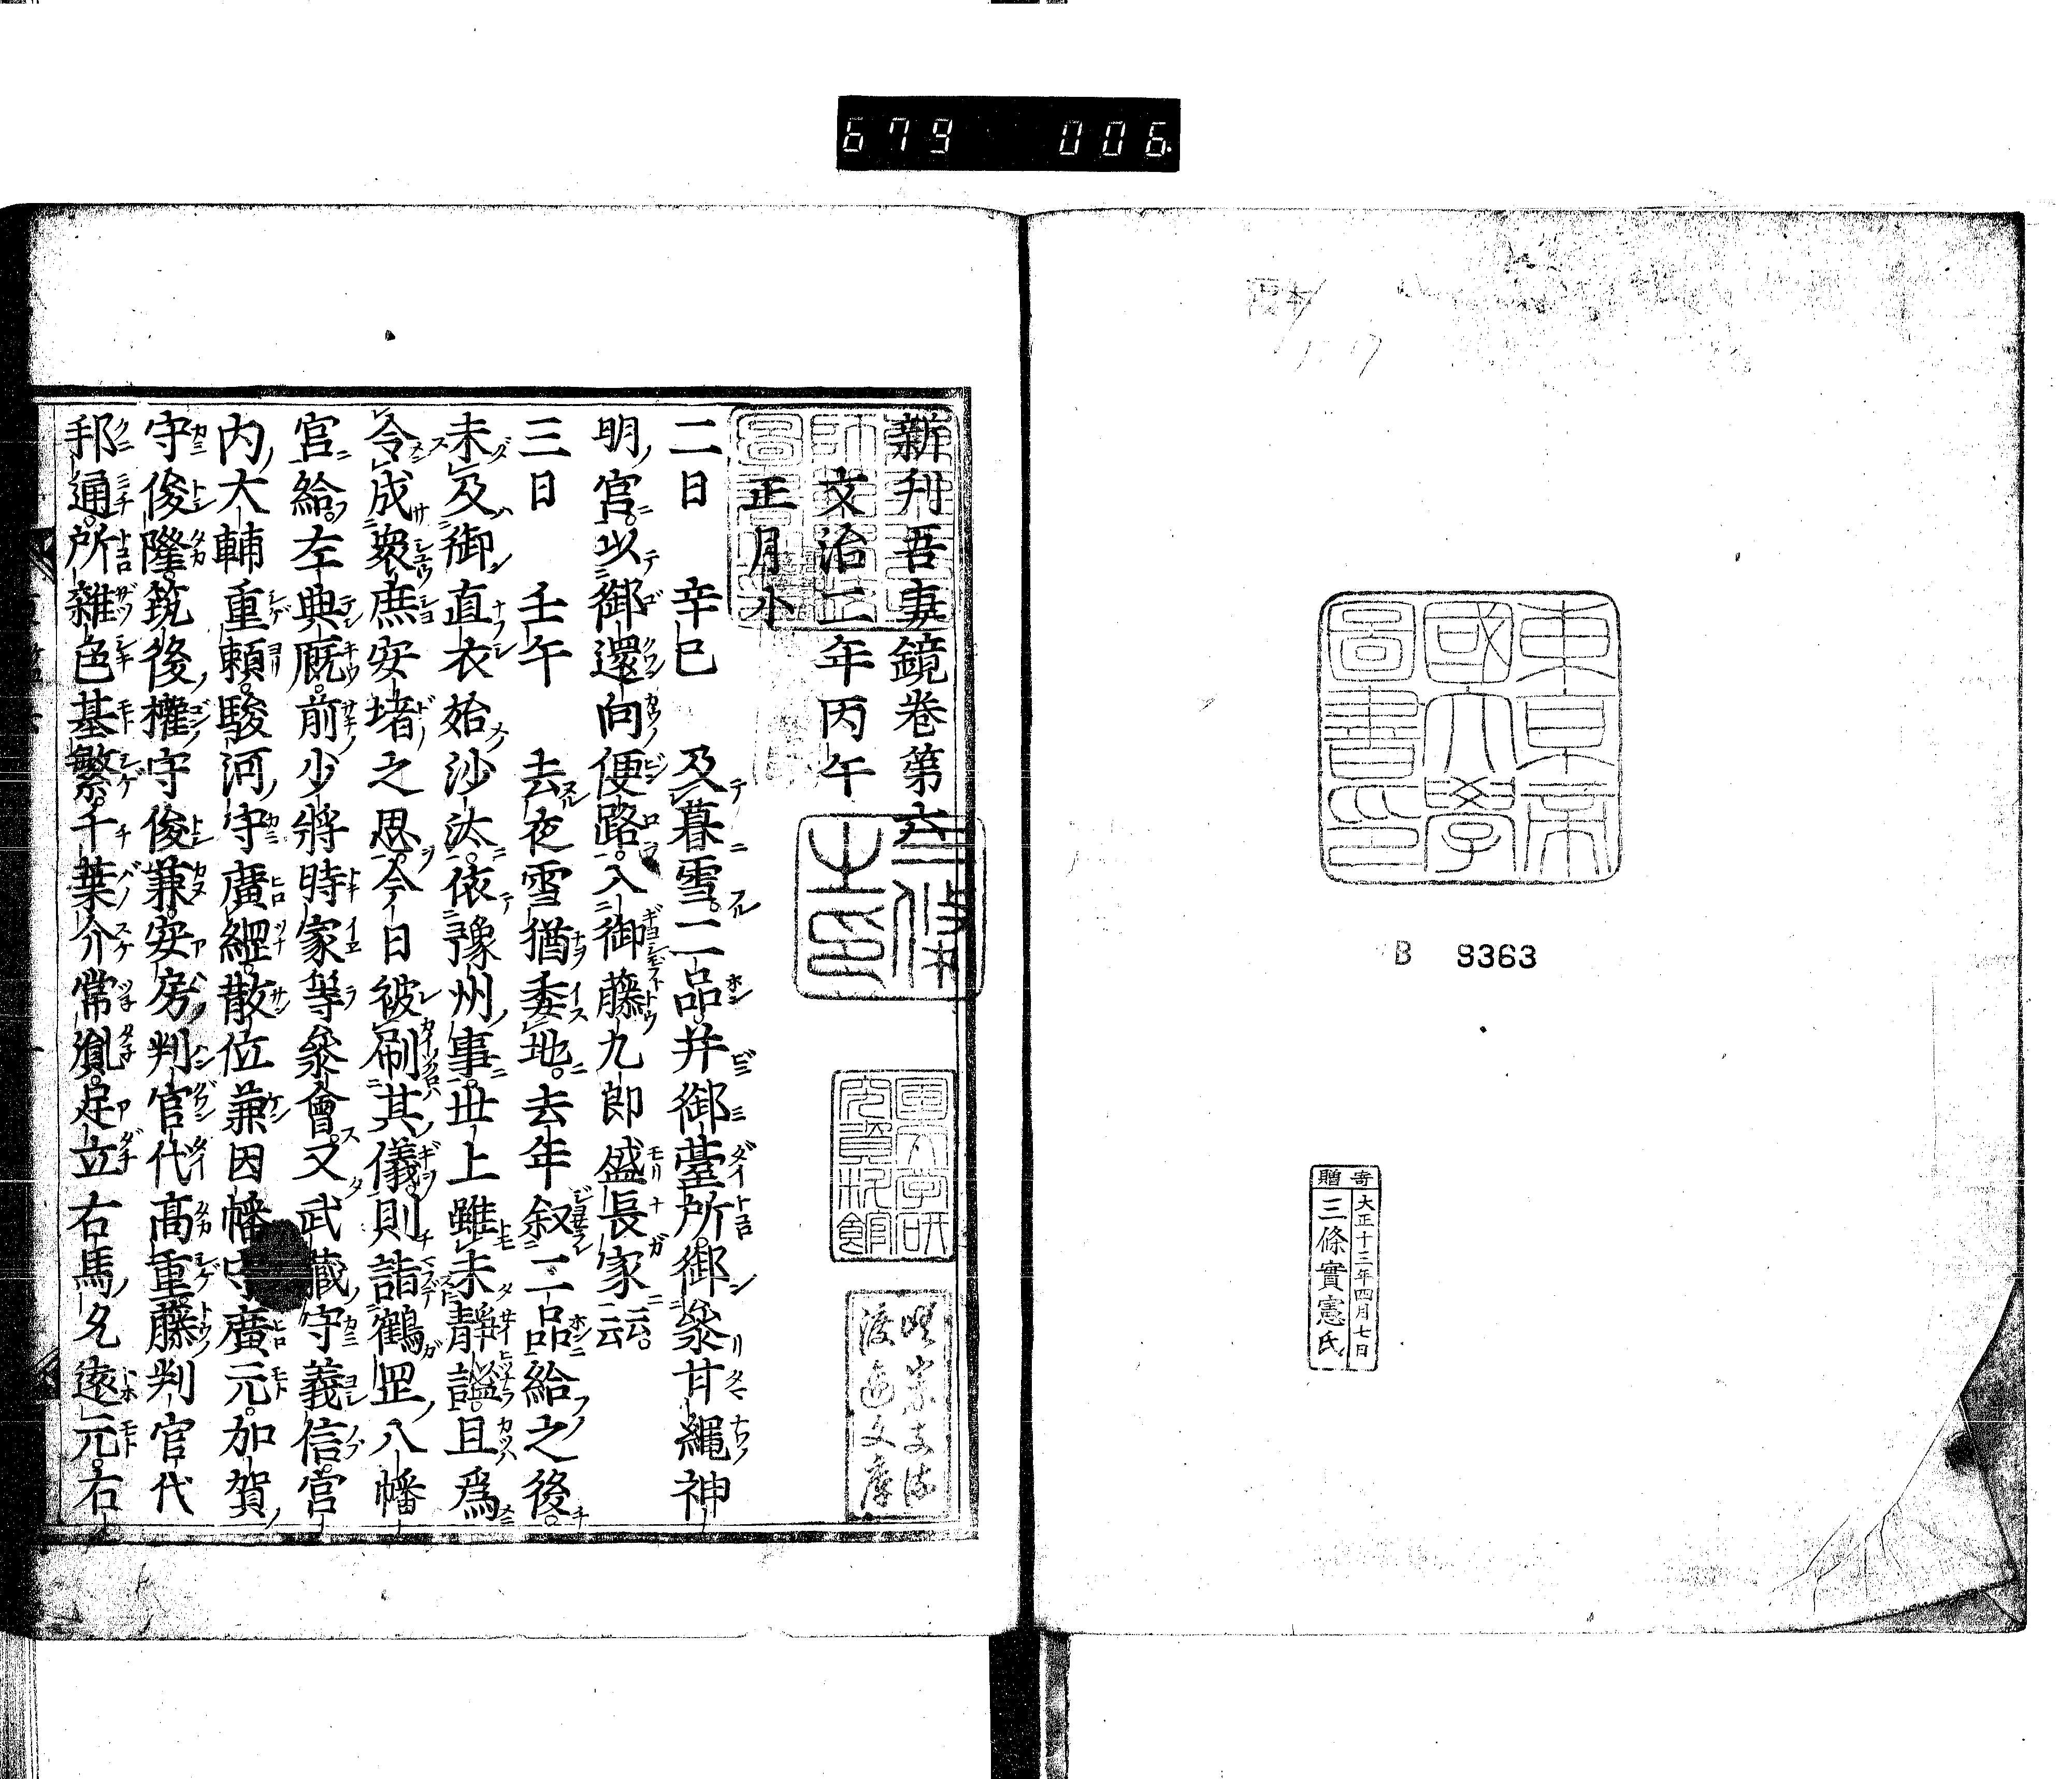 679 006
東京帝
國大學
圖書印
B 9363
寄贈
大正十三年四月七日
三條實憲氏
新刋吾妻鏡卷第六
文治二年丙午
正月小
二日 辛巳 及暮雪。二品并御臺所。御參甘繩神
明官。以御還向便路。入御藤九郎盛長家云云。
三日 壬午 去夜雪猶委地。去年叙二品給之後。
未及御直衣始沙汰。依豫州事。世上雖未靜謐。且爲
令成衆庶安堵之思。今日被刷其儀。則詣鶴罡八幡
官給。左典厩。前少將時家等參會。又武藏守義信。宮
内大輔重頼。駿河守廣綱。散位兼因幡守廣元。加賀
守俊隆。筑後權守俊兼。安房判官代髙重藤判官代
邦通。所雜色基繁。千葉介常胤。足立右馬允遠元。右
三條
之印